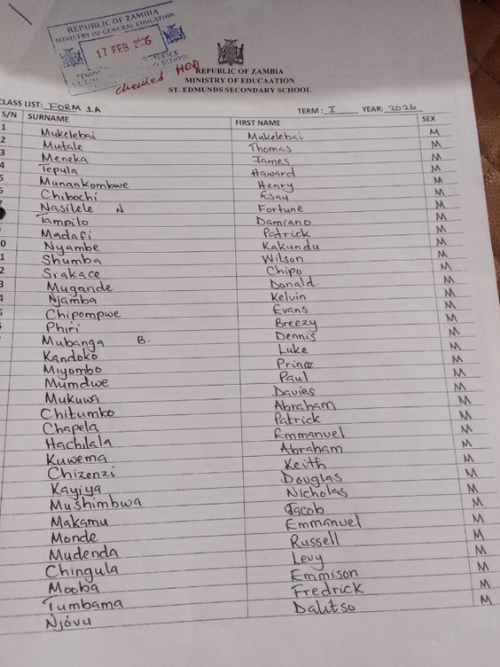 REPUBLIC OF ZAMBIA
MINISTRY OF GENERAL EDUCATION
17 FEB 2026
checked HOD
REPUBLIC OF ZAMBIA
MINISTRY OF EDUCAATION
ST. EDMUNDS SECONDARY SCHOOL
CLASS LIST: FORM 1A TERM: I YEAR: 2026
S/N SURNAME FIRST NAME SEX
1 Mukelebai Mukelebai M
2 Mutale Thomas M
3 Meneka James M
4 Tepula Haward M
5 Munankombwe Henry M
6 Chibochi Esau M
Nasilele N Fortune M
Tampilo Damiano M
Madafi Patrick M
0 Nyambe Kakundu M
1 Shumba Wilson M
2 Siakace Chipo M
3 Mugande Donald M
4 Njamba Kelvin M
5 Chipompwe Evans M
6 Phiri Breezy M
Mubanga B. Dennis M
Kandoko Luke M
Miyombo Prince M
Mumdwe Paul M
Mukuwa Davies M
Chitumbo Abraham M
Chapela Patrick M
Hachilala Emmanuel M
Kuwema Abraham M
Chizenzi Keith M
Kayiya Douglas M
Mushimbwa Nicholas M
Makamu Jacob M
Monde Emmanuel M
Mudenda Russell M
Chingula Levy M
Mooba Emmison M
Tumbama Fredrick M
Njovu Dalitso M